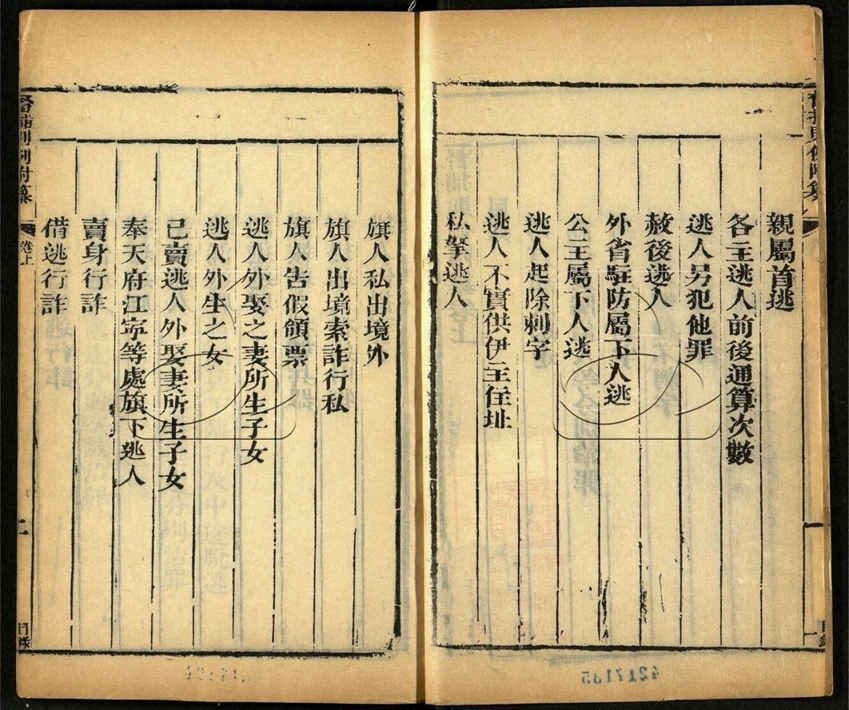 親屬首逃
各主逃人前後通算次數
逃人另犯他罪
赦後逃人
外省駐防屬下人逃
公主屬下人逃
逃人起除刺字
逃人不實供伊主住址
私拏逃人
旗人私出境外
旗人出境索詐行私
旗人告假領票
逃人外娶之妻所生子女
逃人外生之女
已賣逃人外娶妻所生子女
奉天府江寧等處旗下逃人
賣身行詐
借逃行詐
督捕則例附纂
卷上
二
目錄
4217135